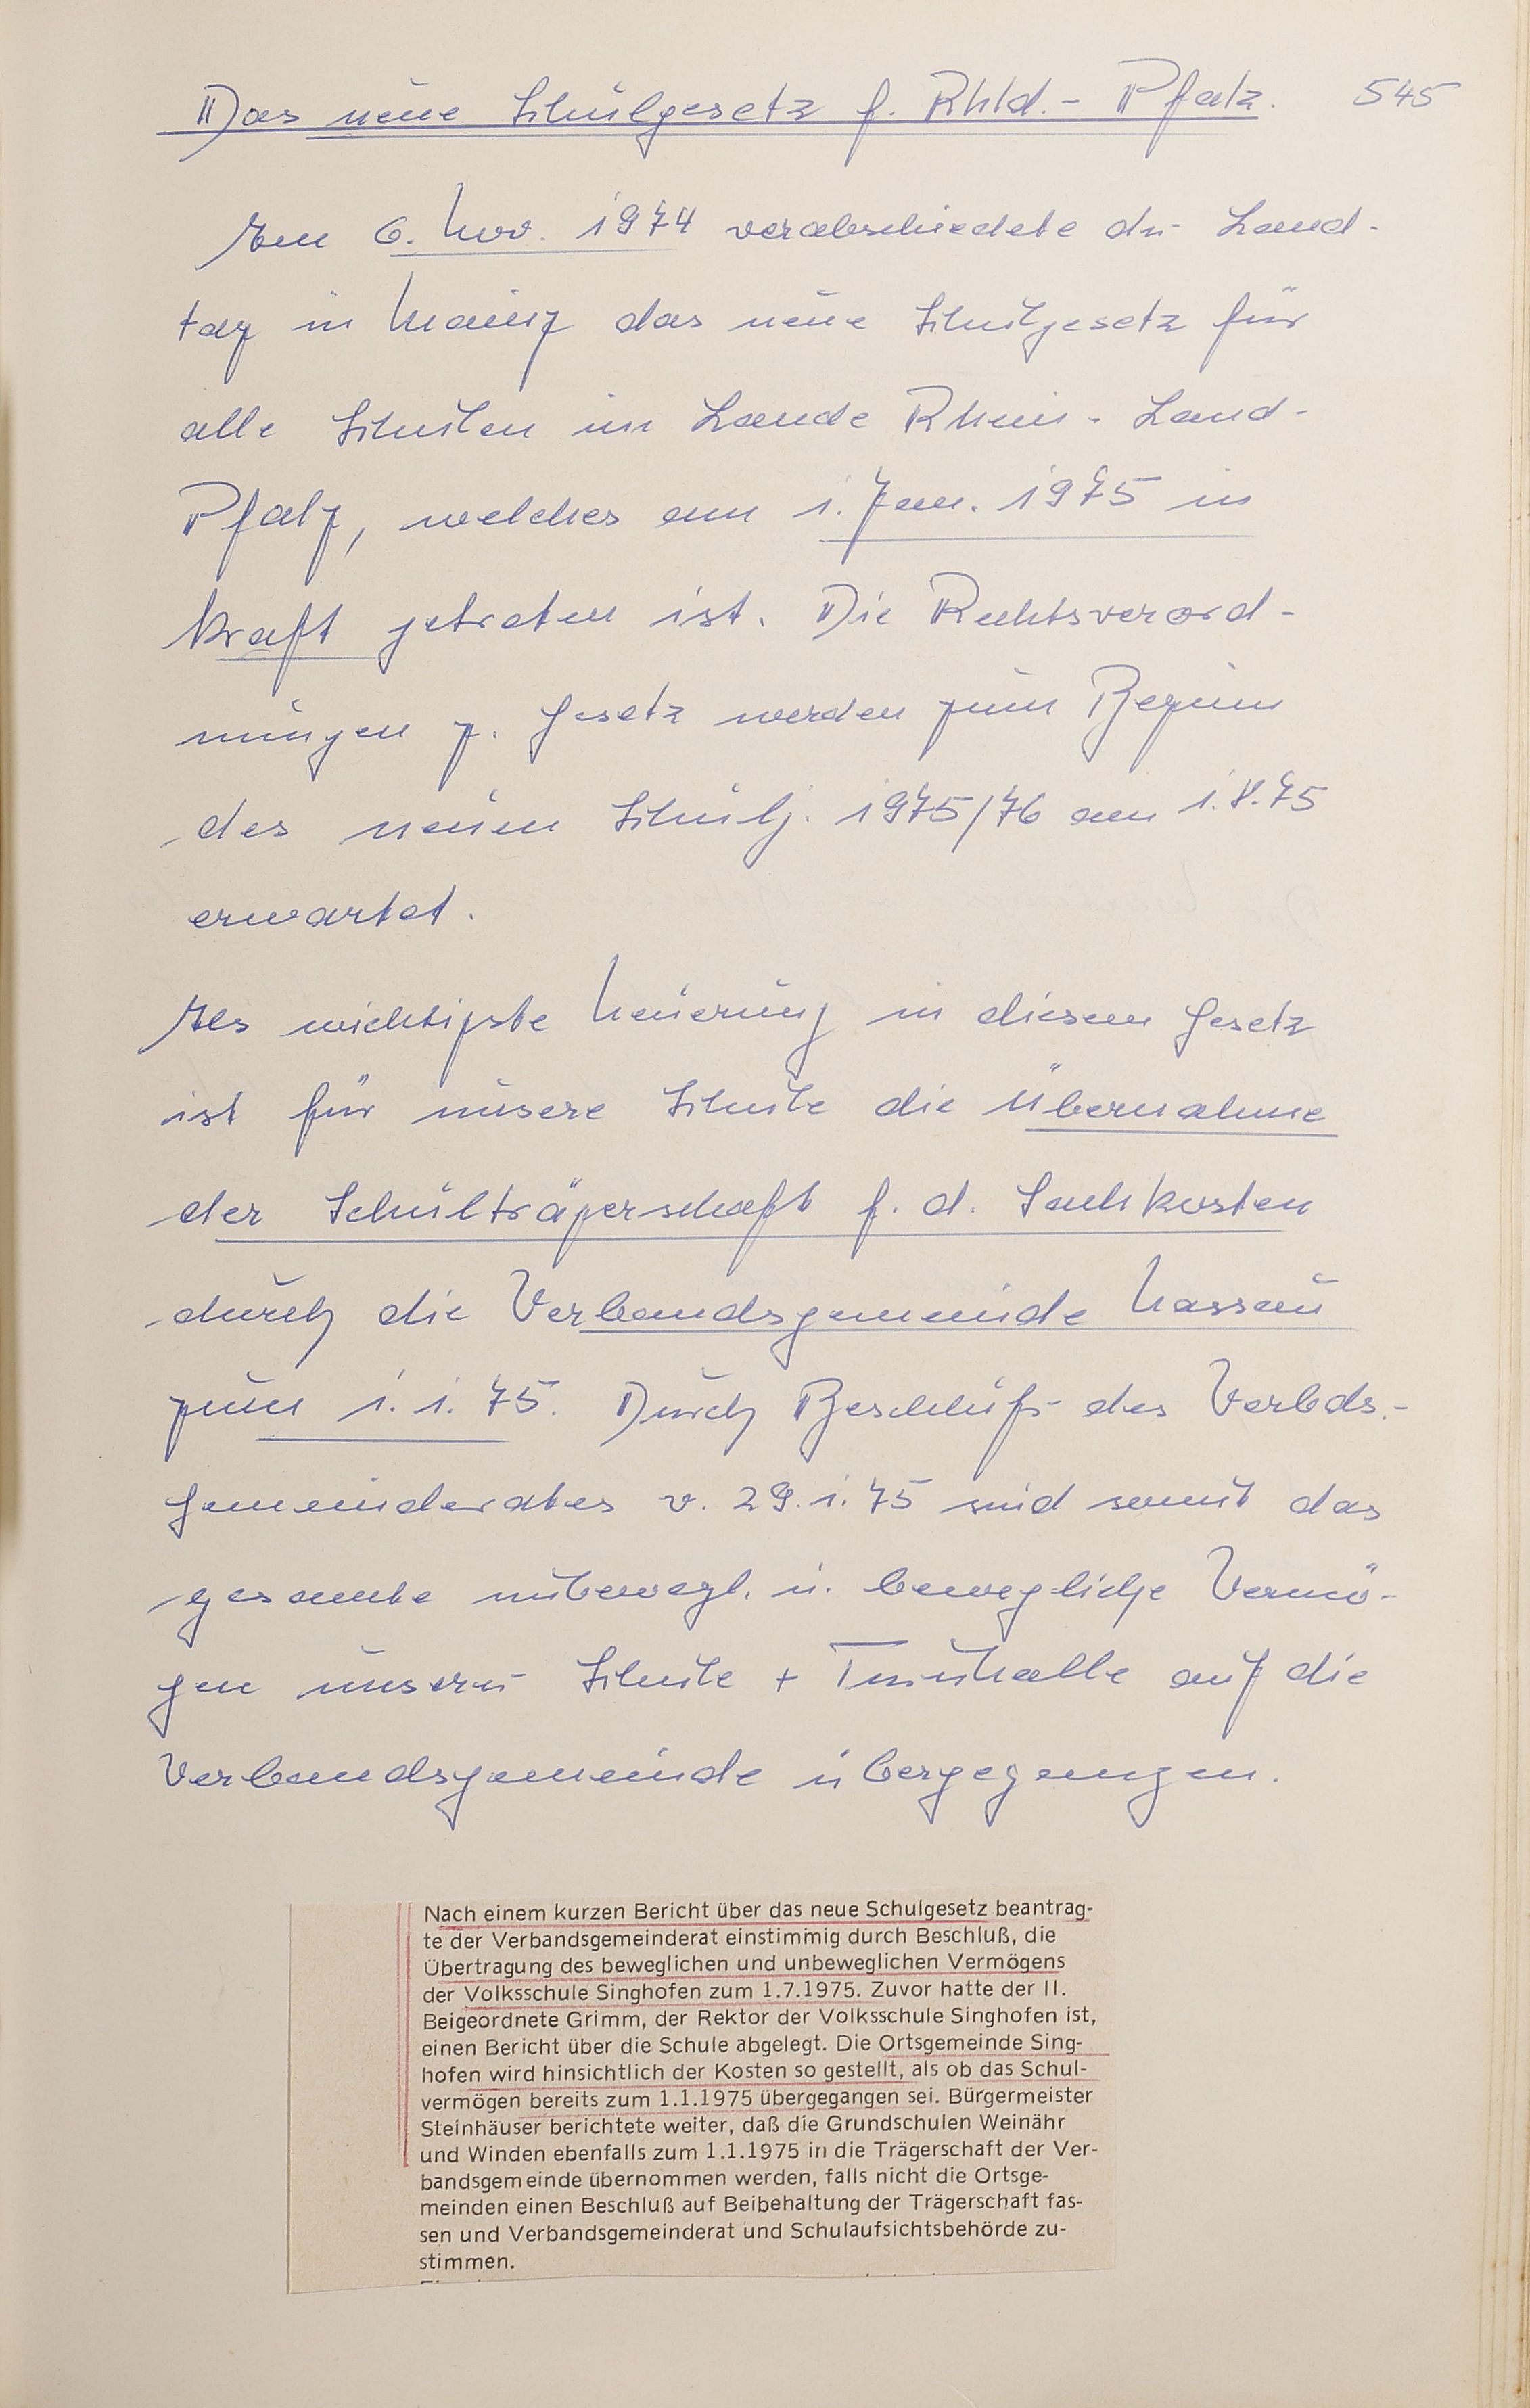 Das neue Schulgesetz f. Rhld.- Pfalz. 545
Am 6. Nov. 1974 verabschiedete der Land-
tag in Mainz das neue Schulgesetz für
alle Schulen im Lande Rhein-Land-
Pfalz, welches am 1. Jan. 1975 in
kraft getreten ist. Die Rechtsverord-
nungen z. Gesetz werden zum Beginn
des neuen Schulj. 1975/76 am 1.8.75
erwartet.
Als wichtigste Neuerung in diesem Gesetz
ist für unsere Schule die Übernahme
der Schulträgerschaft f. d. Sachkosten
durch die Verbandsgemeinde Nassau
zum 1. 1. 75. Durch Beschluß des Verbds.-
gemeinderates v. 29.1.75 sind somit das
gesamte unbewegl. u. bewegliche Vermö-
gen unserer Schule + Turnhalle auf die
Verbandsgemeinde übergegangen.
Nach einem kurzen Bericht über das neue Schulgesetz beantrag-
te der Verbandsgemeinderat einstimmig durch Beschluß, die
Übertragung des beweglichen und unbeweglichen Vermögens
der Volksschule Singhofen zum 1.7.1975. Zuvor hatte der II.
Beigeordnete Grimm, der Rektor der Volksschule Singhofen ist,
einen Bericht über die Schule abgelegt. Die Ortsgemeinde Sing-
hofen wird hinsichtlich der Kosten so gestellt, als ob das Schul-
vermögen bereits zum 1.1.1975 übergegangen sei. Bürgermeister
Steinhäuser berichtete weiter, daß die Grundschulen Weinähr
und Winden ebenfalls zum 1.1.1975 in die Trägerschaft der Ver-
bandsgemeinde übernommen werden, falls nicht die Ortsge-
meinden einen Beschluß auf Beibehaltung der Trägerschaft fas-
sen und Verbandsgemeinderat und Schulaufsichtsbehörde zu-
stimmen.